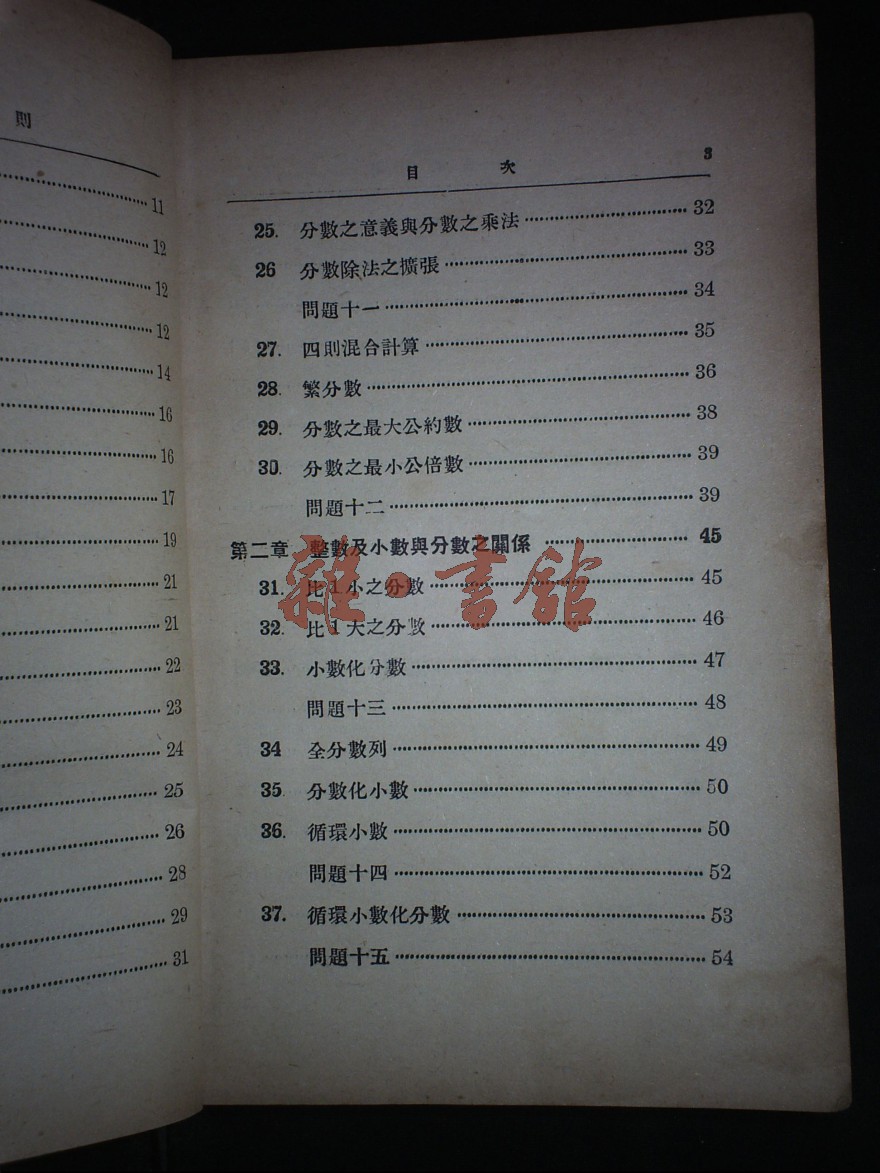 則
11
12
12
12
14
16
16
17
19
21
21
22
23
24
25
26
28
29
31
目 次 3
25. 分數之意義與分數之乘法 32
26 分數除法之擴張 33
問題十一 34
27. 四則混合計算 35
28. 繁分數 36
29. 分數之最大公約數 38
30. 分數之最小公倍數 39
問題十二 39
第二章 整數及小數與分數之關係 45
31. 比1小之分數 45
32. 比1大之分數 46
33. 小數化分數 47
問題十三 48
34 全分數列 49
35. 分數化小數 50
36. 循環小數 50
問題十四 52
37. 循環小數化分數 53
問題十五 54
雜·書館